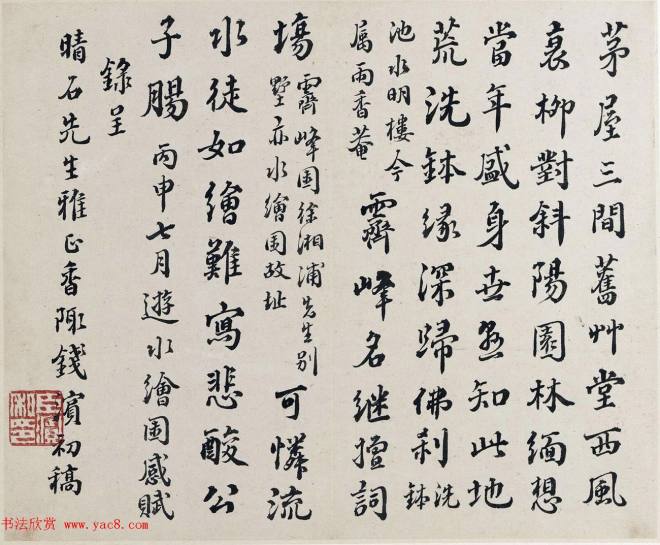 茅屋三間舊艸堂西風
衰柳對斜陽園林緬想
當年盛身世知此地
荒洗鉢緣深歸佛刹洗鉢
池水明樓今
屬雨香菴
霽峰名継擅詞
塲
霽峰園徐湘浦先生别
墅亦水繪園故址
可憐流
水徒如繪難寫悲酸公
子腸丙申七月遊水繪園感賦
錄呈
晴石先生雅正香陬錢濱初稿
书法欣赏 www.yac8.com